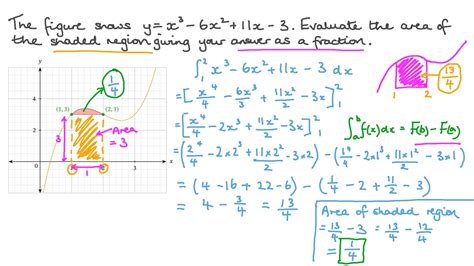 The figure shows y = x³ − 6x² + 11x − 3. Evaluate the area of
the shaded region giving your answer as a fraction.
y
4
2
0
1
3
x
(1, 3)
(2, 3)
1/4
3
Area
= 3
1
∫₁² x³ − 6x² + 11x − 3 dx
= [x⁴/4 − 6x³/3 + 11x²/2 − 3x]₁²
= [x⁴/4 − 2x³ + 11x²/2 − 3x]₁²
= (2⁴/4 − 2×2³ + 11×2²/2 − 3×2) − (1⁴/4 − 2×1³ + 11×1²/2 − 3×1)
= (4 − 16 + 22 − 6) − (1/4 − 2 + 11/2 − 3)
= 4 − 3/4 = 13/4
1
2
13/4
∫ₐᵇ f(x)dx = F(b) − F(a)
Area of shaded region
= 13/4 − 3 = 13/4 − 12/4
= 1/4